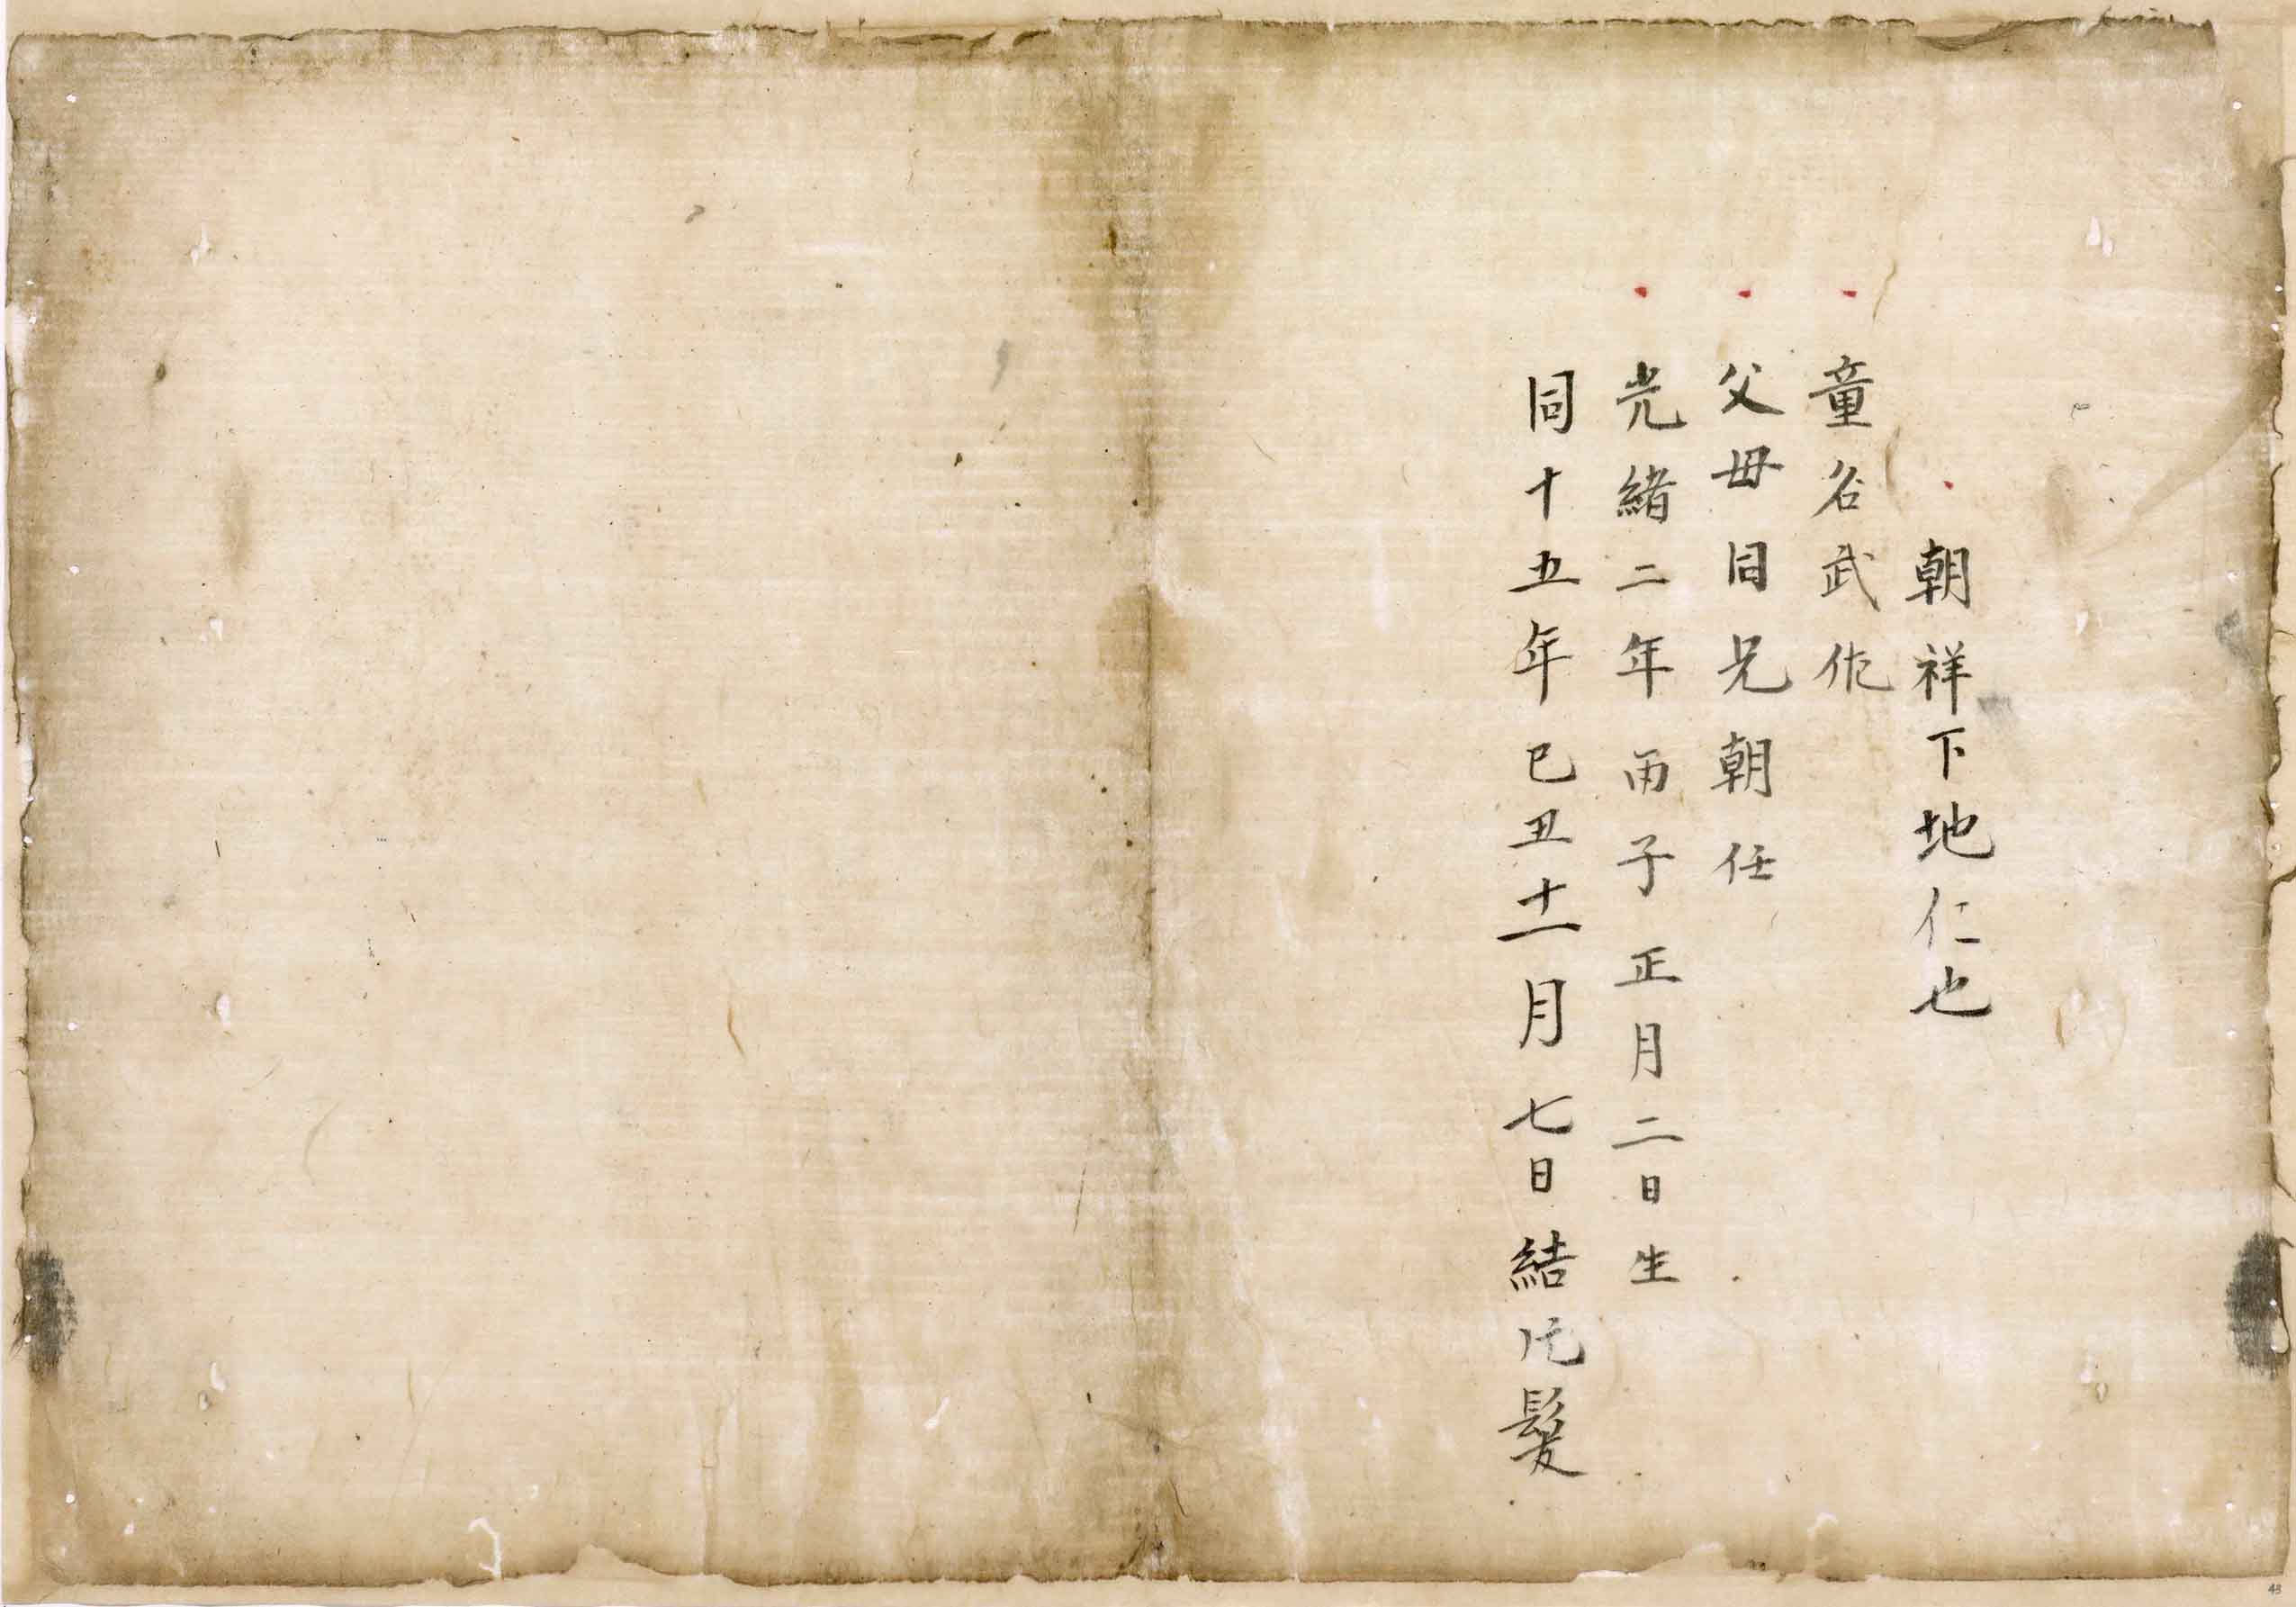 朝祥下地仁也
童名武佐
父母同兄朝任
光緒二年丙子正月二日生
同十五年己丑十一月七日結片髮
48